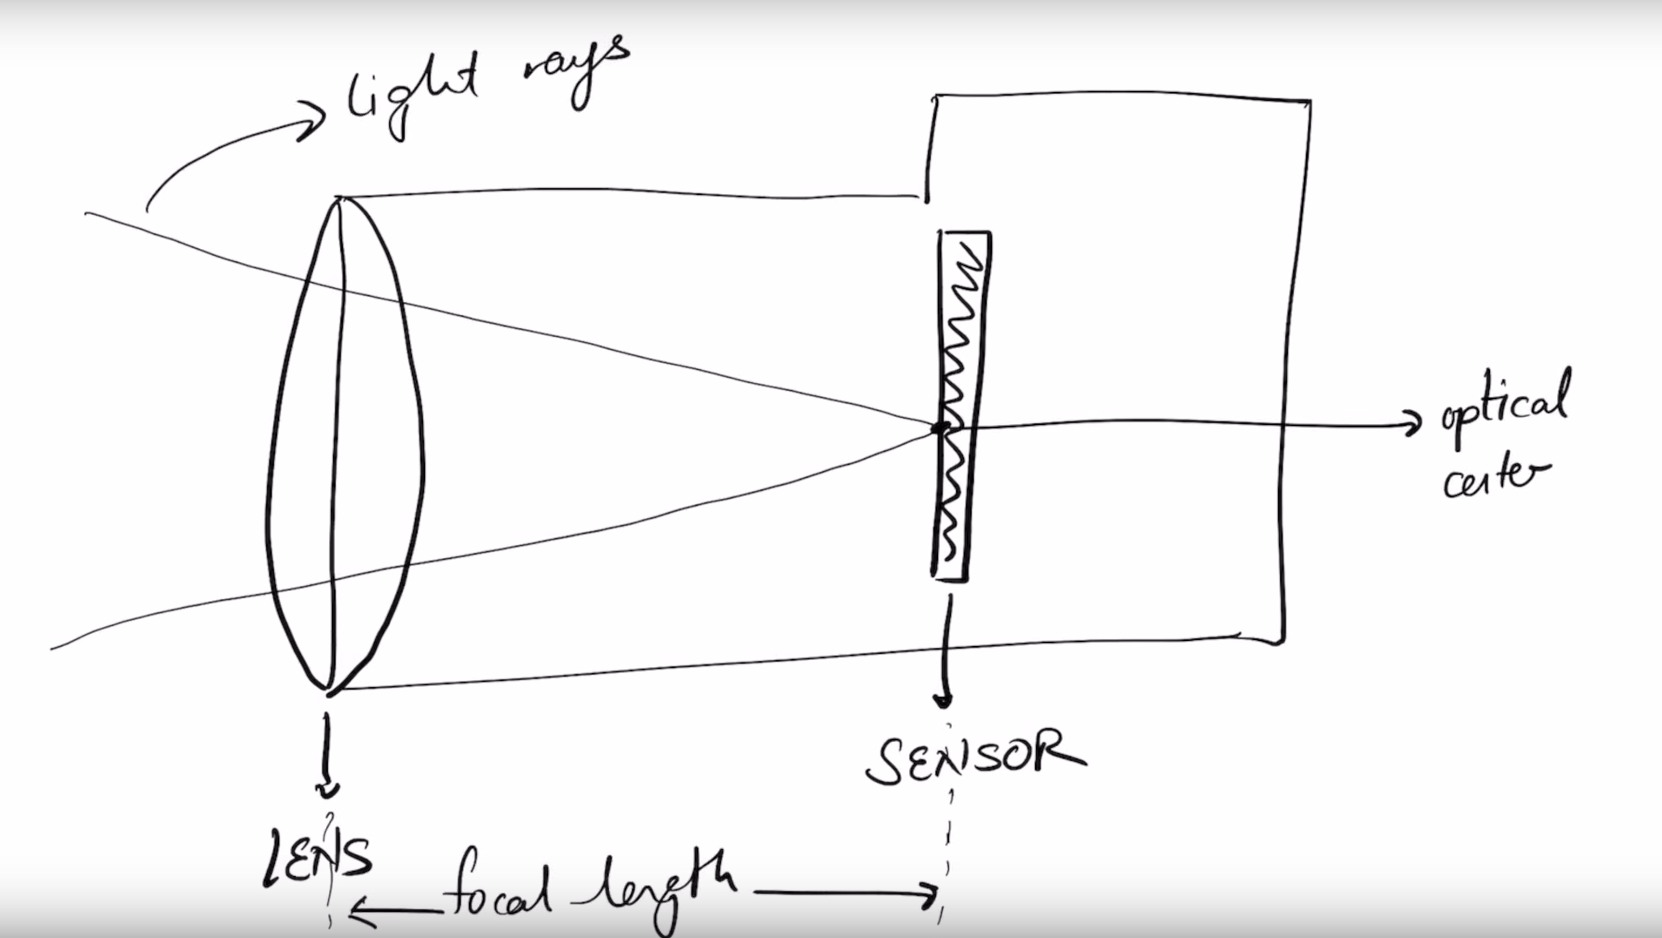 light rays
optical
center
SENSOR
LENS
focal length